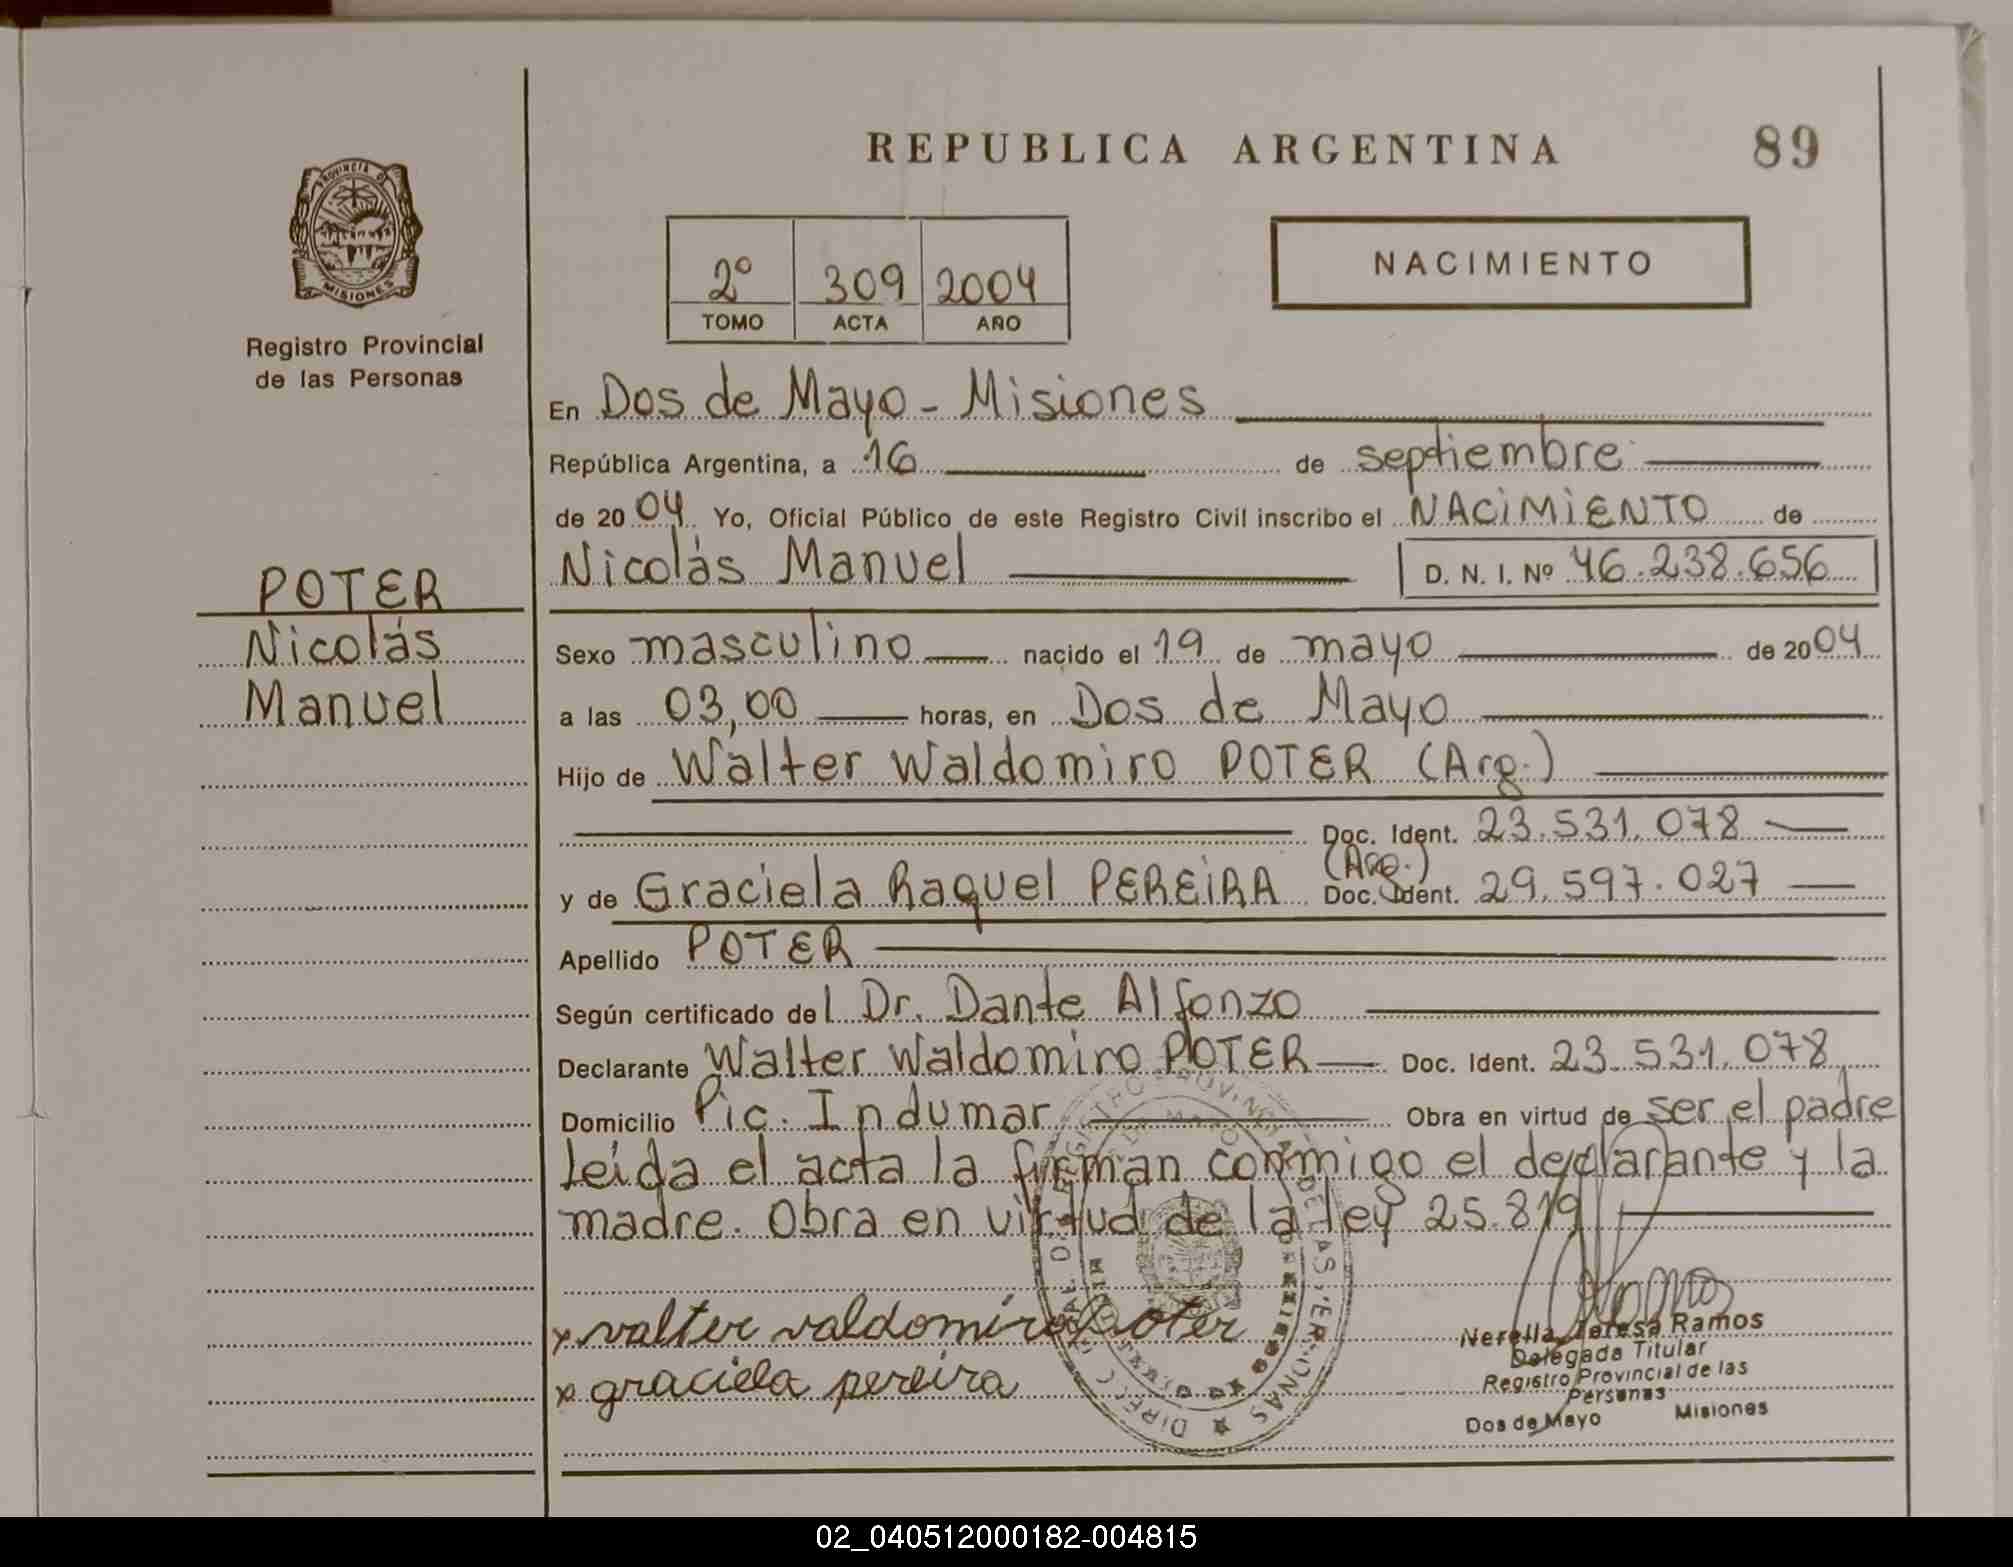 REPUBLICA ARGENTINA 89
PROVINCIA DE
MISIONES
Registro Provincial
de las Personas
2º 309 2004
TOMO ACTA AÑO
NACIMIENTO
En Dos de Mayo - Misiones
República Argentina, a 16 de septiembre
de 2004 Yo, Oficial Público de este Registro Civil inscribo el NACiMiENTO de
Nicolás Manuel D. N. I. Nº 46.238.656
POTER
Nicolás
Manuel
Sexo masculino nacido el 19 de mayo de 2004
a las 03,00 horas, en Dos de Mayo
Hijo de Walter Waldomiro POTER (Arg.)
Doc. Ident. 23.531.078
y de Graciela Raquel PEREiRA (Arg.) Doc. Ident. 29.597.027
Apellido POTER
Según certificado del Dr. Dante Alfonzo
Declarante Walter Waldomiro POTER Doc. Ident. 23.531.078
Domicilio Pic. Indumar Obra en virtud de ser el padre
Leída el acta la firman conmigo el declarante y la
madre. Obra en virtud de la ley 25.819
x valter valdomiro Poter
x graciela pereira
Nerella Teresa Ramos
Delegada Titular
Registro Provincial de las
Personas
Dos de Mayo Misiones
02_040512000182-004815